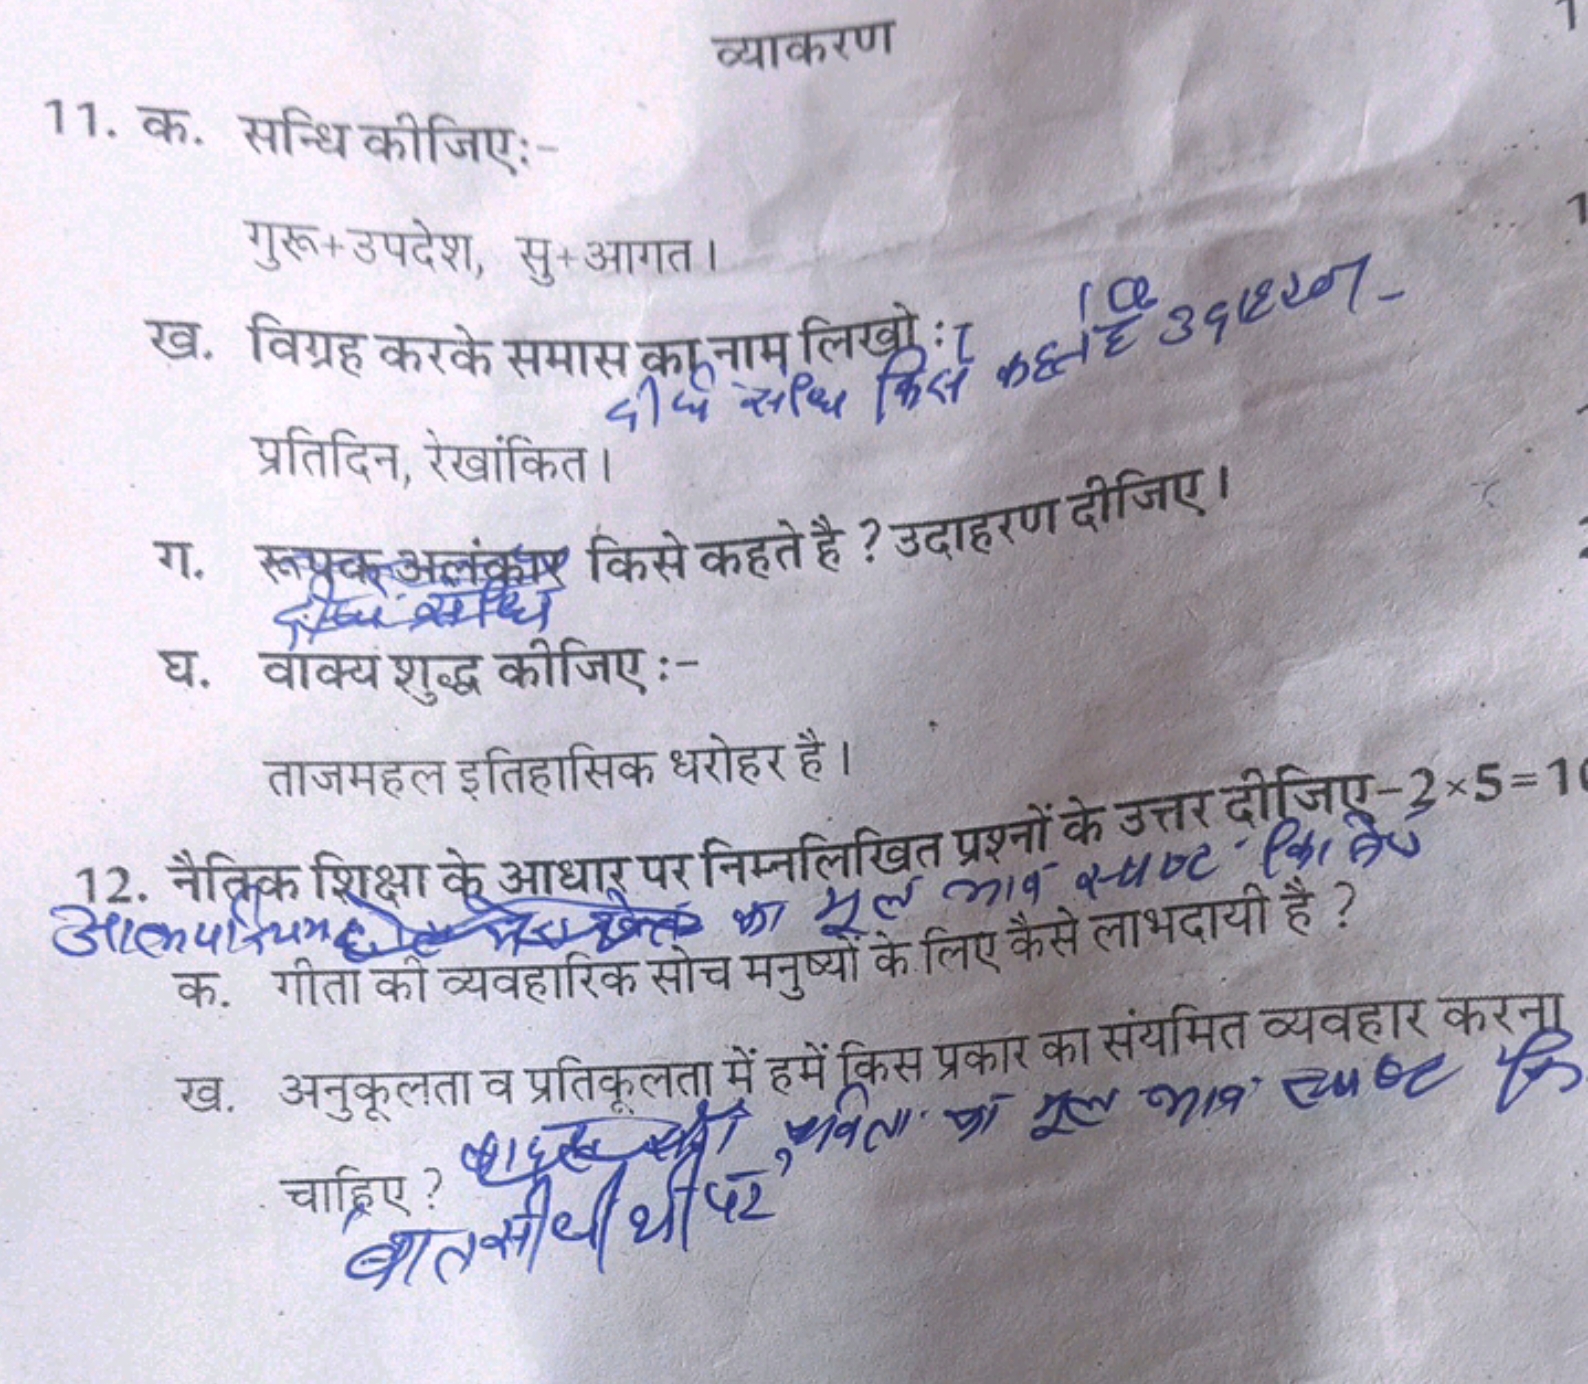 व्याकरण
11. क. सन्धि कीजिए:-
गुरू+उपदेश, सु+आगत।
ख. विग्रह करके समास का नाम लिखो :-
दीर्घ संधि किसे कहते है उदाहरण -
प्रतिदिन, रेखांकित।
ग. रूपक अलंकार किसे कहते है ? उदाहरण दीजिए।
दीर्घ संधि
घ. वाक्य शुद्ध कीजिए :-
ताजमहल इतिहासिक धरोहर है।
12. नैतिक शिक्षा के आधार पर निम्नलिखित प्रश्नों के उत्तर दीजिए-2×5=10
आत्मपरिचय का मूल भाव स्पष्ट
क. गीता की व्यवहारिक सोच मनुष्यों के लिए कैसे लाभदायी है ?
ख. अनुकूलता व प्रतिकूलता में हमें किस प्रकार का संयमित व्यवहार करना
कविता का मूल भाव स्पष्ट कि
चाहिए ?
बात सीधी थी पर